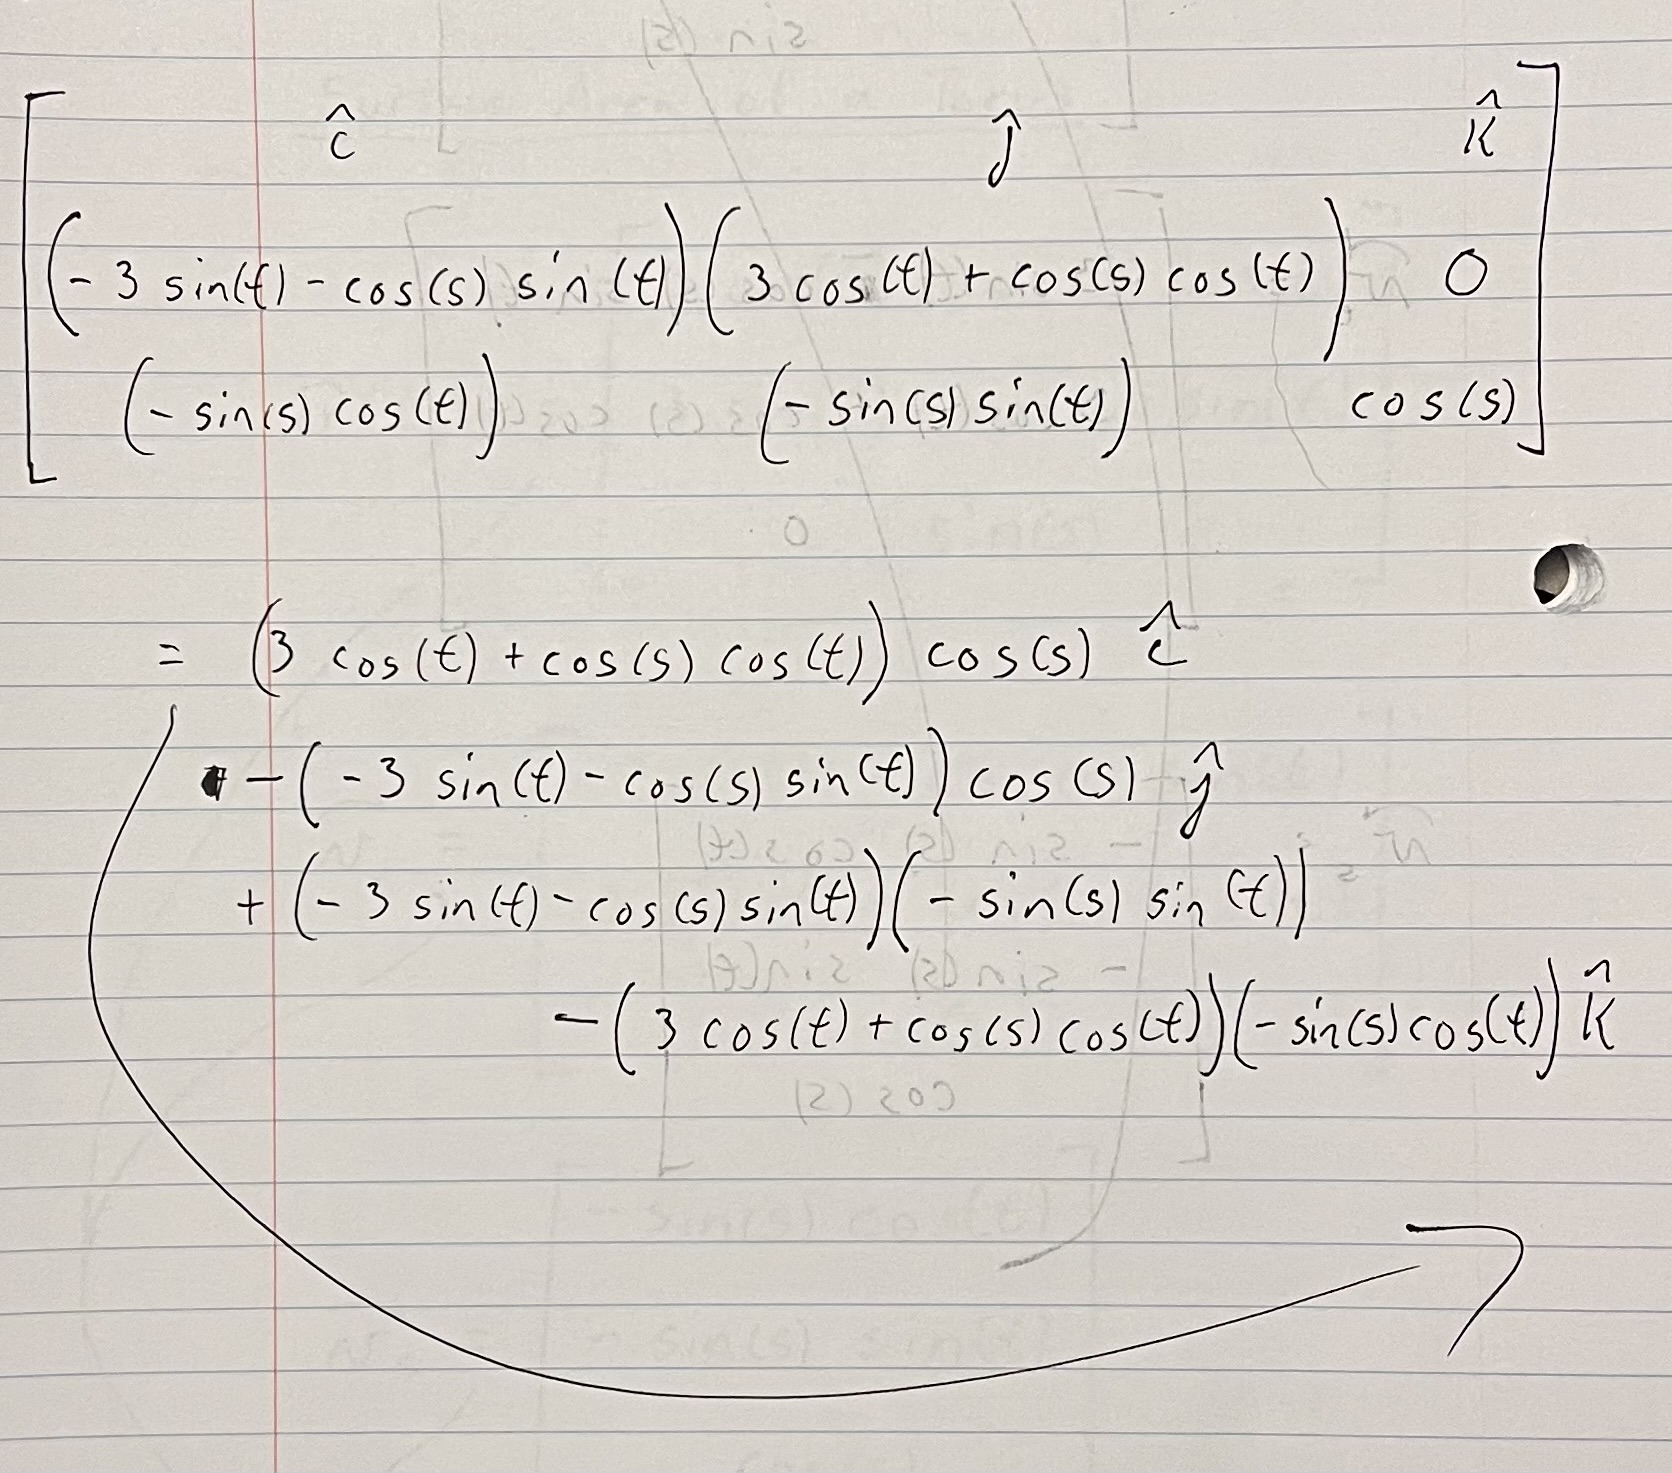 î ĵ k̂
(-3 sin(t) - cos(s) sin(t)) (3 cos(t) + cos(s) cos(t)) 0
(-sin(s) cos(t)) (-sin(s) sin(t)) cos(s)
= (3 cos(t) + cos(s) cos(t)) cos(s) î
-(-3 sin(t) - cos(s) sin(t)) cos(s) ĵ
+ (-3 sin(t) - cos(s) sin(t))(-sin(s) sin(t))
-(3 cos(t) + cos(s) cos(t))(-sin(s) cos(t)) k̂